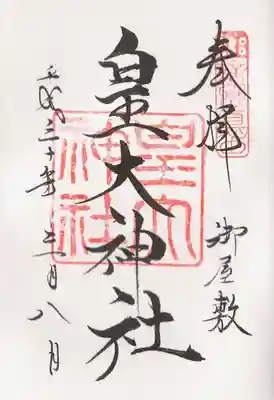 奉拝 御屋敷
皇大神社
平成三十年 三月八日
皇大神社